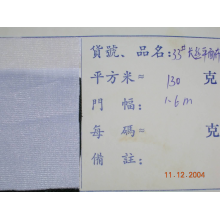 貨號、品名：33#长丝平面布
平方米＝ 130 克
門 幅： 1.6m
每 碼＝ 克
備 註：
11.12.2004